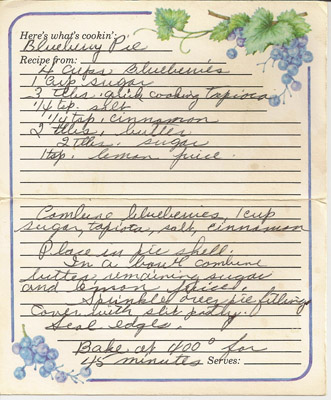 Here's what's cookin'
Blueberry Pie
Recipe from:
4 Cups Blueberries
1 Cup sugar
3 tbls. quick cooking tapioca
1/4 tsp. salt
1/4 tsp. cinnamon
2 tbls. butter
2 tbls. sugar
1 tsp. lemon juice
Combine blueberries, 1 cup
sugar, tapioca, salt, cinnamon
Place in pie shell.
In a bowl combine
butter, remaining sugar
and lemon juice.
Sprinkle over pie filling
Cover with slit pastry.
Seal edges.
Bake at 400° for
45 minutes Serves: